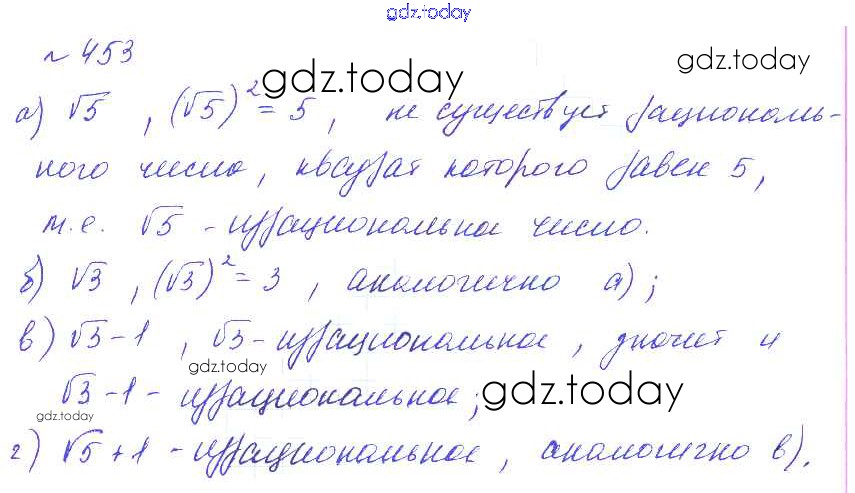 gdz.today
№ 453
gdz.today
gdz.today
а) √5 , (√5)² = 5 , не существует рациональ-
ного числа, квадрат которого равен 5,
т.е. √5 - иррациональное число.
б) √3 , (√3)² = 3 , аналогично а) ;
в) √3-1 , √3 - иррациональное , значит и
gdz.today
√3-1 - иррациональное ;
gdz.today
gdz.today
г) √5+1 - иррациональное , аналогично в).